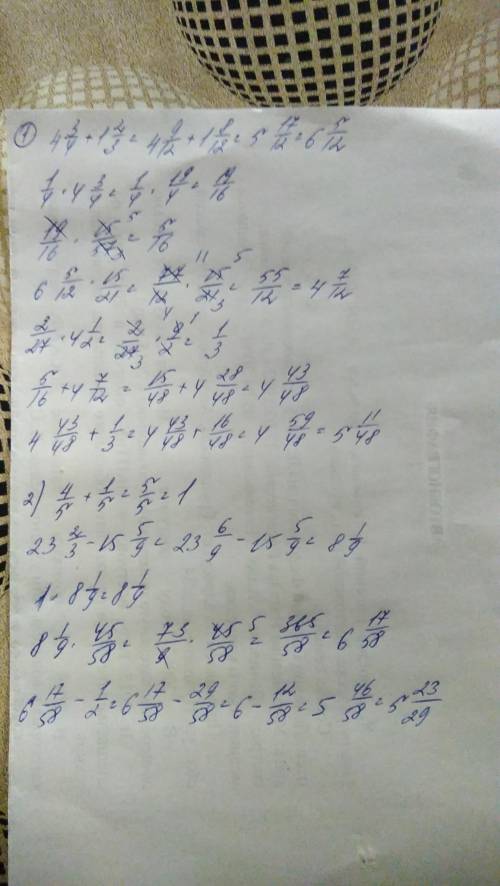 ① 4 3/4 + 1 2/3 = 4 9/12 + 1 8/12 = 5 17/12 = 6 5/12
1/4 · 4 3/4 = 1/4 · 19/4 = 19/16
19/16 · 15/57 3 5 = 5/16
6 5/12 · 15/21 = 77/12 11 4 · 15/21 5 3 = 55/12 = 4 7/12
2/27 · 4 1/2 = 2/27 3 · 9/2 1 = 1/3
5/16 + 4 7/12 = 15/48 + 4 28/48 = 4 43/48
4 43/48 + 1/3 = 4 43/48 + 16/48 = 4 59/48 = 5 11/48
2) 4/5 + 1/5 = 5/5 = 1
23 2/3 - 15 5/9 = 23 6/9 - 15 5/9 = 8 1/9
1 · 8 1/9 = 8 1/9
8 1/9 · 45/58 = 73/9 · 45/58 5 = 365/58 = 6 17/58
6 17/58 - 1/2 = 6 17/58 - 29/58 = 6 - 12/58 = 5 46/58 = 5 23/29